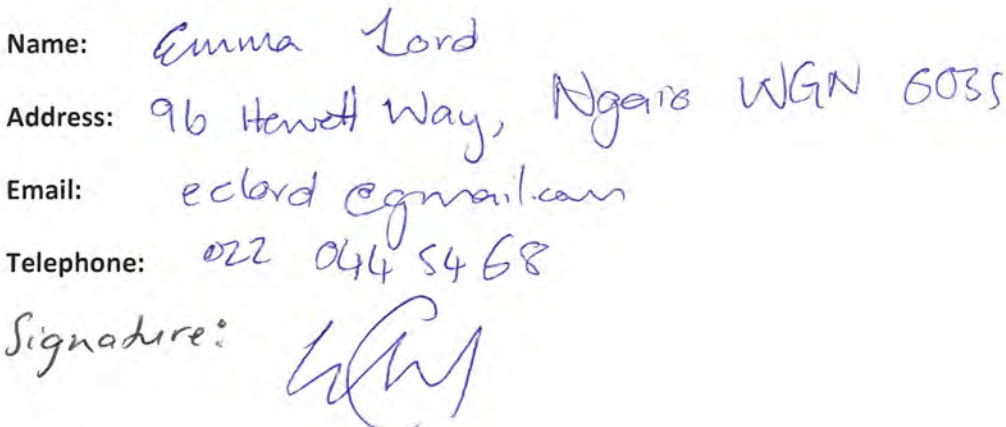 Name: Emma Lord
Address: 9b Hewett Way, Ngaio WGN 6035
Email: eclord@gmail.com
Telephone: 022 044 5468
Signature: